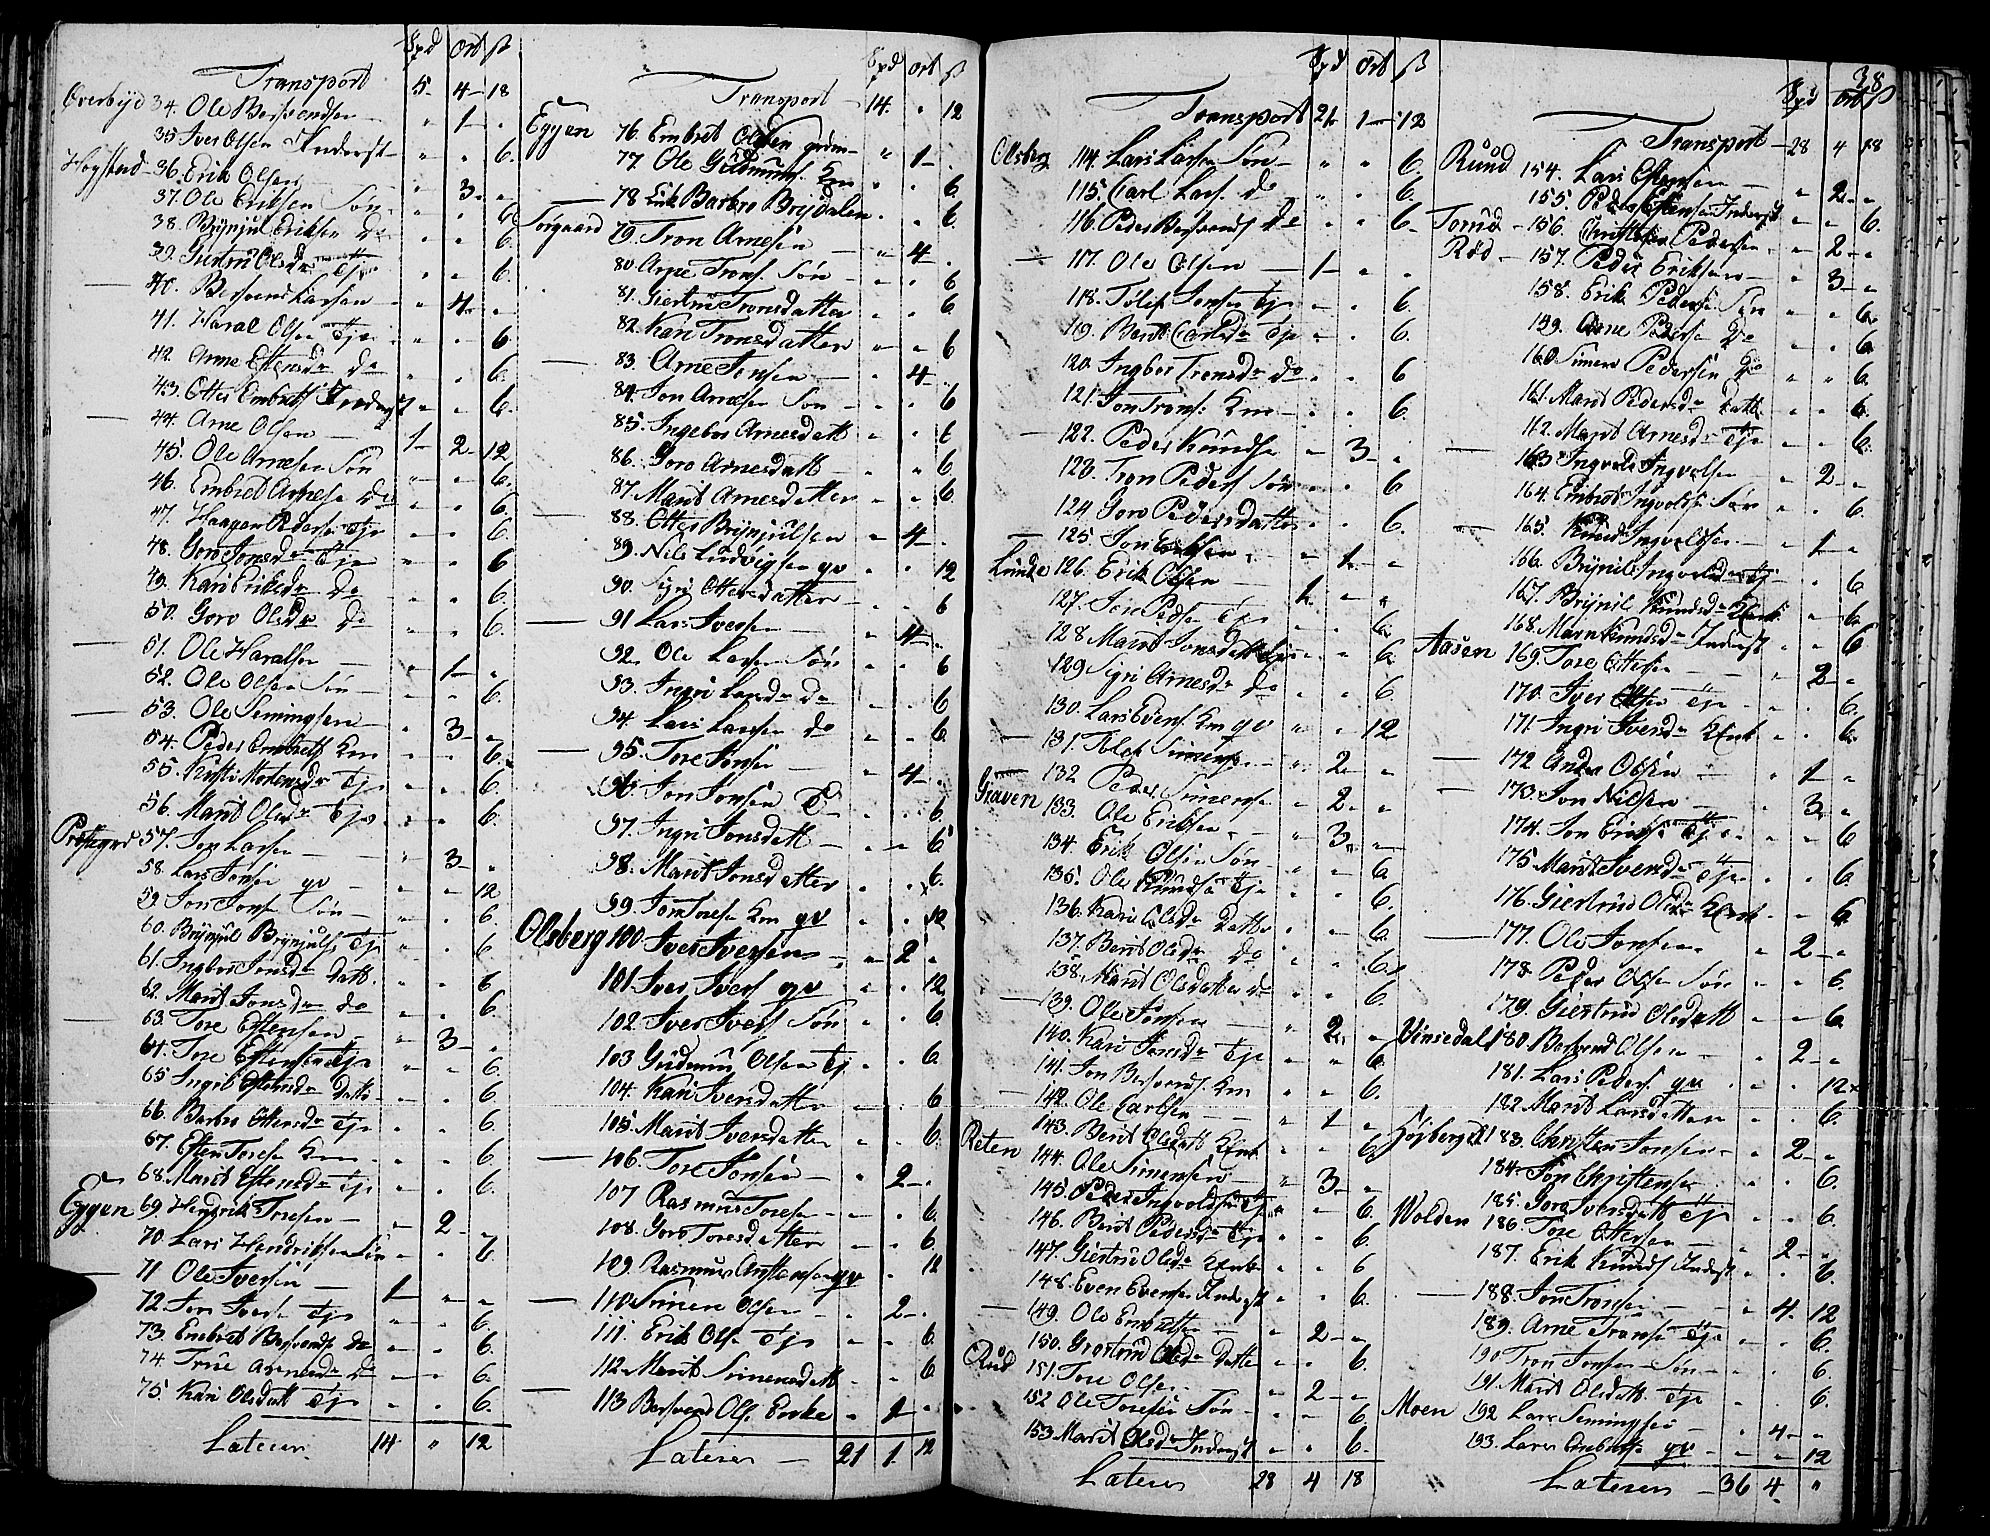 38
Spd Ort ß
Transport 5 - 4 - 18
Overbyd 34. Ole Bersvendsen - " 1 - "
35 Iver Olsen Inderst - " " 6.
Hogstad - 36. Erik Olsen - " 3 - "
37. Ole Eriksen Søn - " " 6
38. Brynjul Eriksen do " " 6.
39. Giertru Olsdr Tje " " 6.
— 40. Bersvend Larsen - " 4 - "
41. Haral Olsen Tje " " 6
42. Arne Estensdr do " " 6.
43. Otter Embrets Inderst " " 6.
— 44. Arne Olsen — 1 - 2 - 12
45. Ole Arnesen Søn " " 6.
46. Embret Arnese do " " 6.
47. Haagen Pederse Tje " " 6.
48. Goro Jonsdr Tje " " 6
49. Kari Eriksdr Do " " 6.
50. Goro Olsdr Do " " 6.
— 51. Ole Haralsen — " 1 - "
52. Ole Olsen Søn — " " 6.
— 53. Ole Simingsen " 3 - "
54. Peder Embrets Km " " 6.
55. Kisti Mortensdr Tje " " 6.
56. Marit Olsdr Tje " " 6.
Prestgrd 57. Jon Larsen — " 3 - "
58. Lars Jonsen gv — " " 12
59. Jon Jonse Søn - " " 6.
60. Brynjul Brynjuls Tje " " 6
61. Ingbor Jonsdr Datt. " " 6
62. Marit Jonsdr do " " 6
— 63. Tore Estensen - " 3 - "
64. Tore Estensen Tje " " 6.
65 Ingeb Estensdr Datt " " 6.
66. Barbro Ottersdr Tje " " 6
67. Esten Torese Km " " 6
68. Marit Estensdr Tje " " 6.
Eggen 69. Hendrik Toresen — " 2 - "
70. Lars Hendriksen Søn " " 6.
— 71 Ole Iversen — 1 - " "
72. Jon Ivers Tje " " 6
73. Embret Bersvends do " " 6.
74. True Arnesdr D " " 6.
75. Kari Olsdatt Tje " " 6.
Lateris 14 " 12
Spd Ort ß
Transport 14. " 12
Eggen 76. Embret Olsen " 1 - "
77. Ole Gudmuns. Km " " 6
78 Enk Barbro Brydalen " " 6.
Sørgaard 79. Tron Arnesen — " 4 - "
80. Arne Trons. Søn " " 6
81. Giertru Tronsdatter " " 6.
82. Kari Tronsdatter " " 6
— 83. Arne Jonsen — " 4 -
84. Jon Arnesen Søn — " " 6
85. Ingebor Arnesdatt " " 6
86. Goro Arnesdatt — " " 6.
87. Marit Arnesdatter " " 6.
— 88. Otter Brynjulsen " 4 - "
89. Nils Ludvigsen gv " " 12
90. Sigri Ottersdatter — " " 6
— 91 Lars Iversen — " 4 - "
92. Ole Larsen Søn " " 6
93. Ingri Larsdr do " " 6
94. Lars Larsen do " " 6.
— 95. Tore Jonsen — " 4 - "
96. Jon Jonsen " " 6.
97. Ingri Jonsdatt — " " 6
98. Marit Jonsdatter " " 6.
99. Jon Torese Km gv " " 12
Olsberg 100. Iver Iversen - " 2 "
101. Iver Ivers gv " " 12
102. Iver Ivers Søn " " 6.
103 Gudmun Olsen Tj " " 6.
104. Kari Iversdatter " " 6
105. Marit Iversdatter " " 6.
— 106. Tore Jonsen — " 2 - "
107 Rasmus Toresen " " 6.
108. Goro Toresdatter " " 6
109. Rasmus Anstensen gv " 12
— 110. Simen Olsen — " 2 - "
111. Erik Olse Tje " " 6.
112. Marit Simensdatt " " 6
— 113 Bersvend Ols. " 1 - "
Lateris — 21 1 12
Spd Ort ß
Transport 21 - 1 - 12
Olsberg 114. Lars Larsen Søn - " " 6.
115. Carl Lars. do " " 6.
116. Peder Bersvends do " " 6.
— 117. Ole Olsen — 1 - " "
118. Tolef Jonsen Tje " " 6.
119. Berit Carlsdr Tje " " 6.
120. Ingbor Tronsdr do " " 6
121. Jon Trons: Km - " " 6.
— 122. Peder Knudsen " 3 - "
123. Tron Peders Søn " " 6.
124 Goro Pedersdatter " " 6.
— 125. Jon " 1 - "
Lunde 126. Erik Olsen — 1 - " "
127. Jon Peders Tje " " 6.
128 Marit Jonsdatt " " 6
129 Sigri Arnesdr do " " 6
130. Lars Evens. Km gv " " 12
— 131. Tolef Simens — " 2 - "
— 132 Peder Simensen " 2 - "
Graven 133. Ole Eriksen - " 3 - "
134. Erik Olsen Søn - " " 6
135. Ole Knudse Tje " " 6.
136. Kari Olsdr Datter " " 6.
137. Berit Olsdr Do " " 6.
138. Marit Olsdatter do " " 6.
— 139. Ole Jonsen — " 2 - "
140. Kari Jonsdr Tje " " 6
141. Jon Bersvends. Km " " 6.
— 142. Ole Carlsen — " 1 - "
Reten 143. Berit Olsdatt " " 6
144. Ole Simensen " 3 - "
145. Peder Ingvoldsen Tje " " 6.
146. Berit Pedersdr Tje " " 6.
147. Giertru Olsdr " " 6
148. Even Evensen Inderst " " 6.
— 149. Ole Embretsen " 2 - "
150. Giertrud Olsdr Datter " " 6.
Ruud 151. Tore Olsen " 2 - "
152 Ole Toresen Søn " " 6
153. Marit Olsdr Inderst " " 6.
Lateris 28 4 18
Spd Ort ß
Transport 28 4 18
Ruud 154. Lars Estensen — " 2 - "
155. Peder Estensen Inderst " " 6.
Toruud - 156. Christofer Pedersen " 2 - "
Rød - 157. Peder Eriksen " 3 - "
158. Erik Pederse Søn " " 6
159. Arne Pederse Do " " 6
160. Simen Pedersen Do " " 6.
161. Marit Pedersdr Datt " " 6.
162. Marit Arnesdr Tje " " 6.
— 163. Ingvold Ingvolsen " 2 - "
164. Embret Ingvolds Søn " " 6.
— 165. Knud Ingvoldsen - " 1 - "
166. Brynil Ingvoldsdr Tje " " 6.
167. Brynil Knudsdr " " 6.
168. Marn Knudsdr Inderst " " 6
Aasen 169. Tore Ottesen " 2 - "
170. Iver Olsen Tje " " 6.
171. Ingri Iversdr " " 6.
— 172. Anders Olsen — " 1 - "
— 173. Jon Nilsen — " 3 "
174. Jon Eriks. Tje " " 6
175 Marit Iversdr Tje " " 6.
176. Giertrud Olsdr " " 6
— 177. Ole Jonsen " 2 - "
178. Peder Olsen Søn " " 6.
179. Giertrud Olsdatt " " 6.
Vinsedal 180. Bersvend Olsen - " 2 - "
181. Lars Peders. gv - " " 12
182. Marit Larsdatter " " 6.
Højberget 183. Christen Jonsen - " 2 - "
184. Jon Christensen " " 6.
185. Goro Iversdatt Tje " " 6.
Wolden 186. Tore Ottersen - " 2 - "
187. Erik Knuds Inderst " " 6
— 188. Jon Tronsen — " 4. 12
189. Arne Tronsen Tje " " 6.
190. Tron Jonsen Søn - " " 6
191. Marit Olsdatt Tje " " 6.
Moen 192 Lars Simingsen " 4 - "
193. Lars Embrets gv " " 12
Lateris — 36 4 "